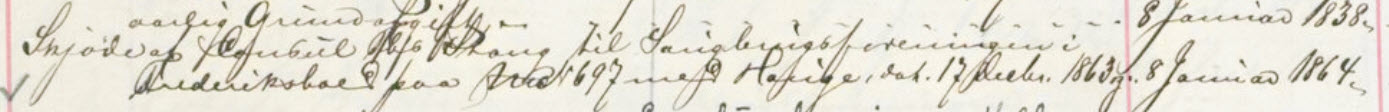 aarlig Grundafgift. 8 Januar 1838.
Skjøde af Consul Stang til Saugbrugsforeningen i
Frederikshald paa No 697 med Hauge, dat. 17 Decbr. 1863, 8 Januar 1864.